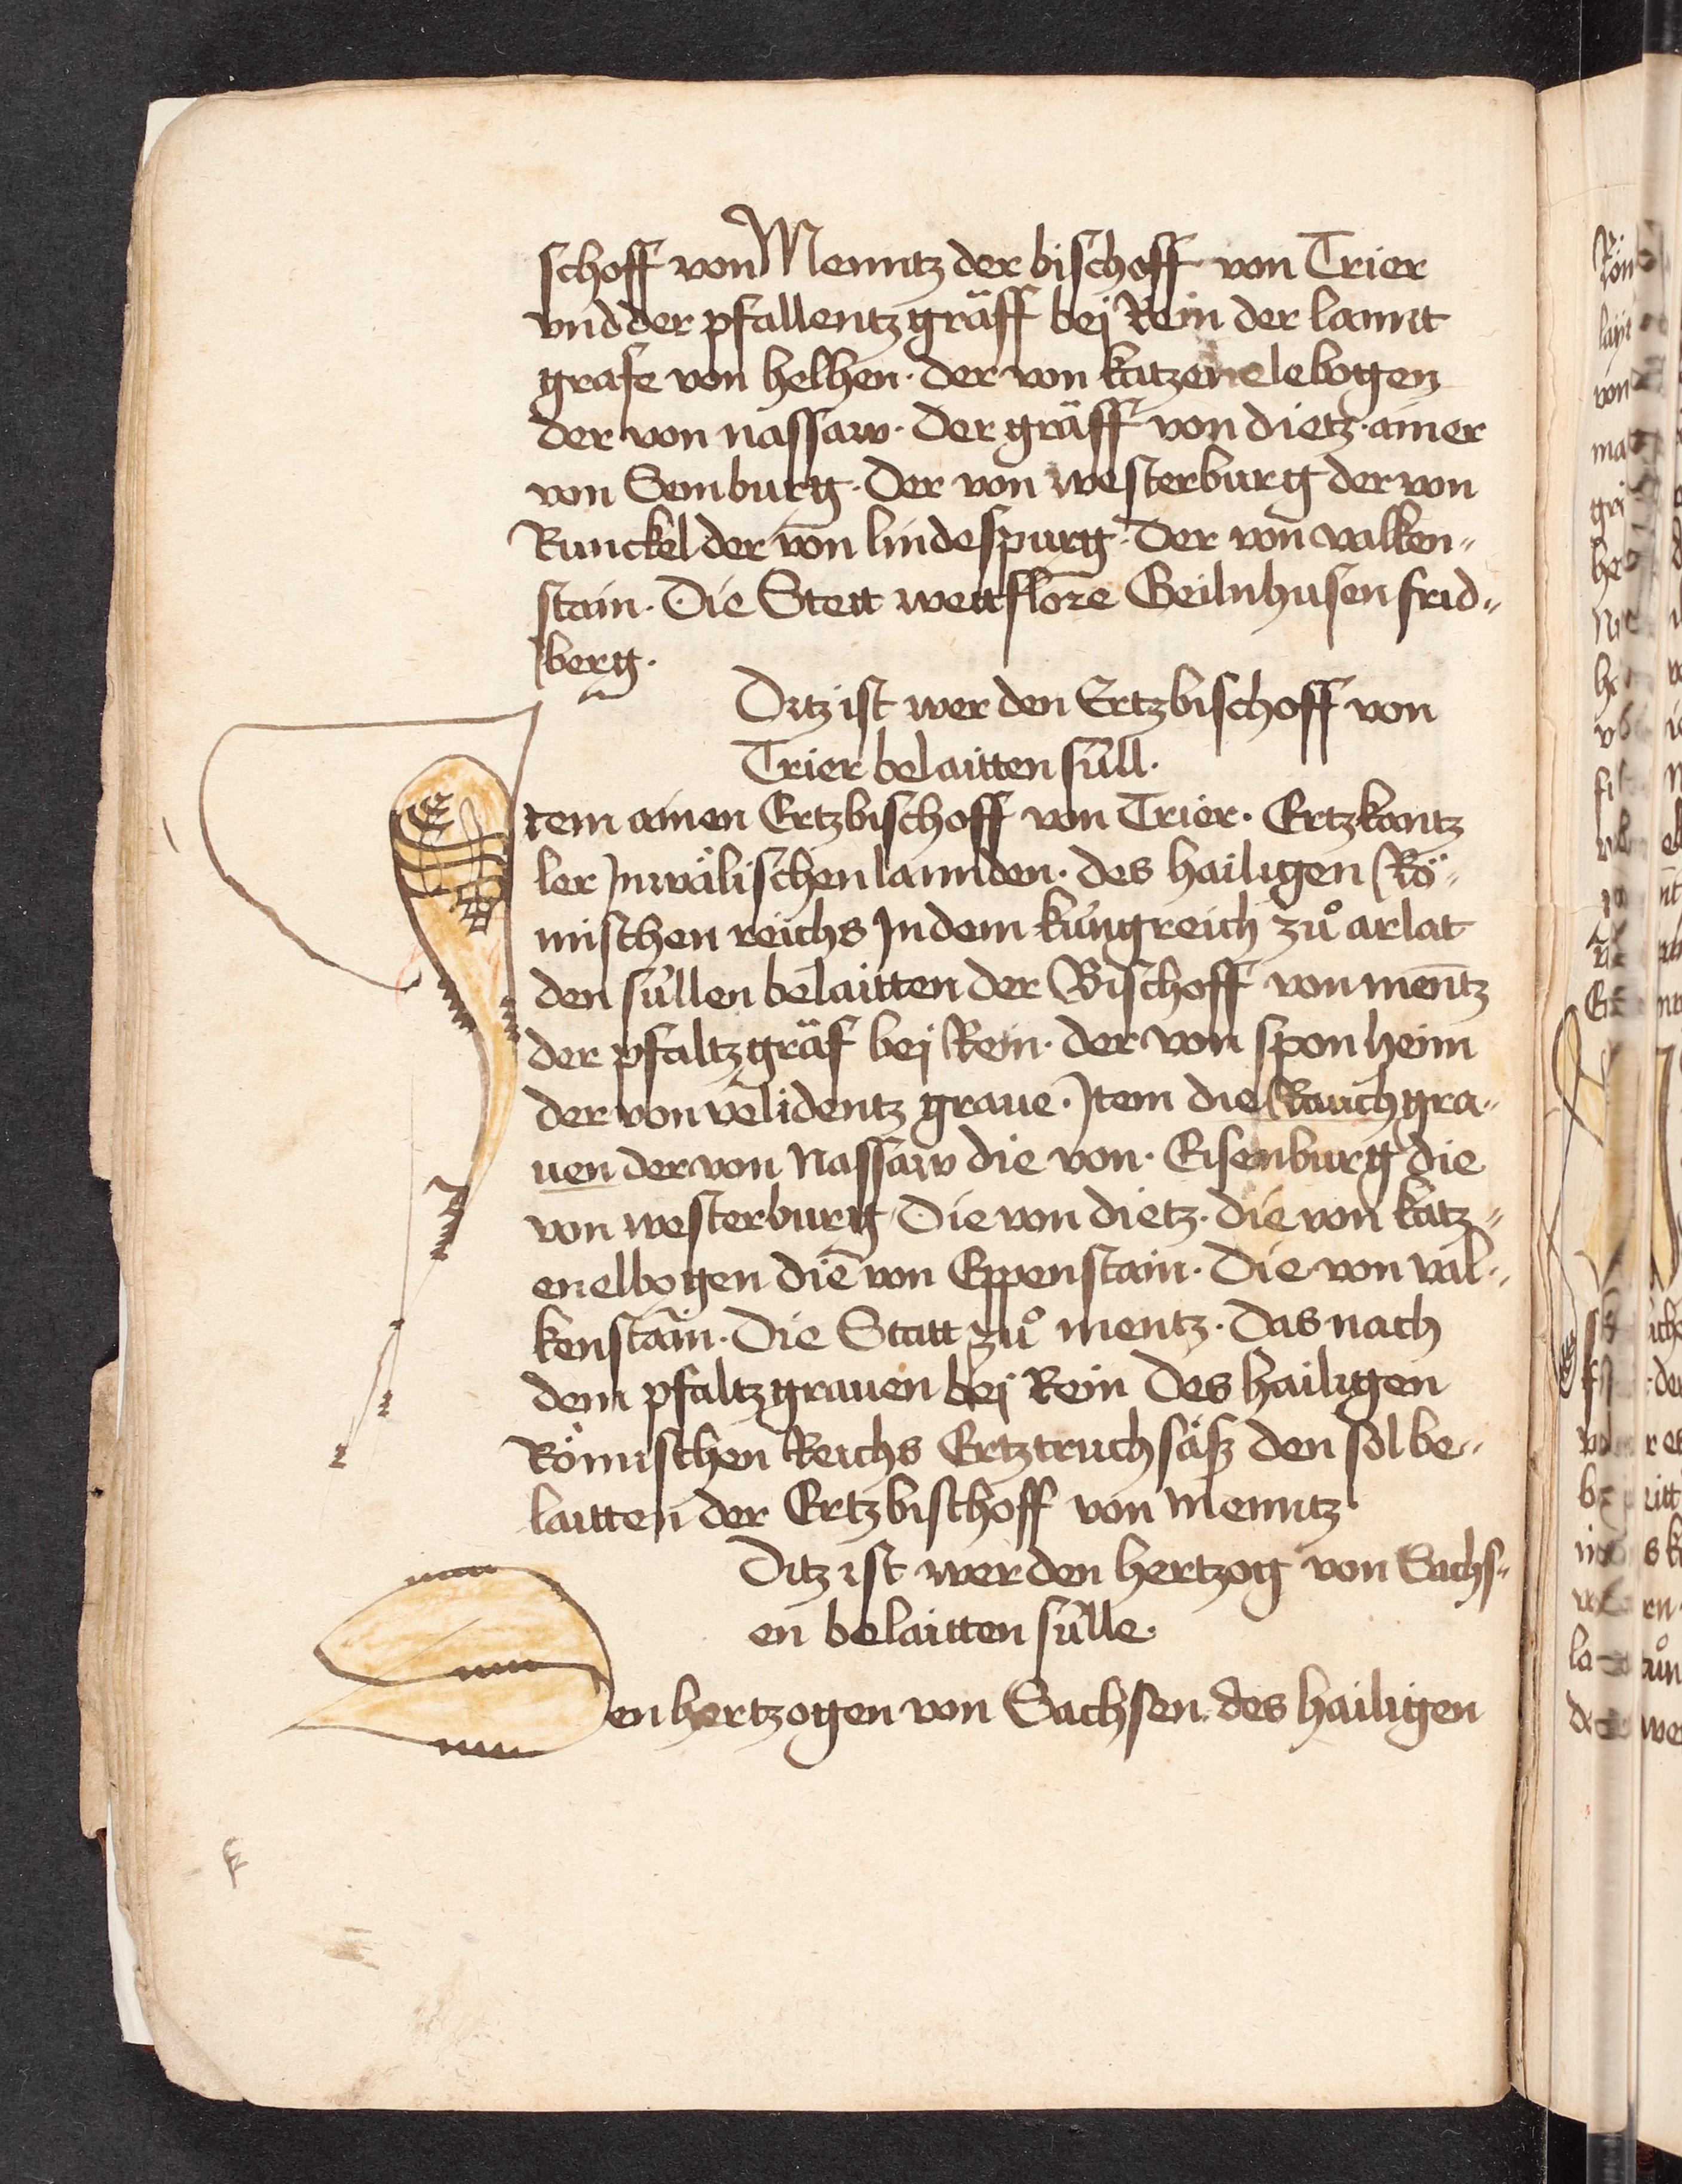 schoff von Menntz der bischoff von Trier
vnd der pfallentz gräff bej Rein der lannt
grafe von helhen · der von katzenelebogen
der von nassaw · der gräff von dietz · ainer
von Semburg · der von westerburg der von
Runckel der von lindespurg · der von valken„
stain · Die Stett wettflore Geilnhusen frid„
berg ·
Ditz ist wer den Ertzbischoff von
Trier belaitten süll ·
Item ainen Ertzbischoff von Trier · Ertzkantz
ler In wälischen lannden · des hailigen Rö„
mischen reichs In dem küngreich zů arlat
den süllen belaitten der Bischoff von mentz
der pfaltzgräf bej Rein · der von sponheim
der von velidentz graue · Item die Rauchgra„
uen der von Nassaw die von · Eisenburg die
von westerburg Die von dietz · die von katz„
enelbogen die von Eppenstain · Die von val„
kenstain · Die Statt zů mentz · Das nach
dem pfaltzgrauen bej Rein Des hailigen
Römischen Reichs Ertztruchsäsz den sol be„
laitten der Ertzbischoff von menntz
Ditz ist wer den hertzog von Sachs„
en belaitten sülle ·
Den hertzogen von Sachsen des hailigen